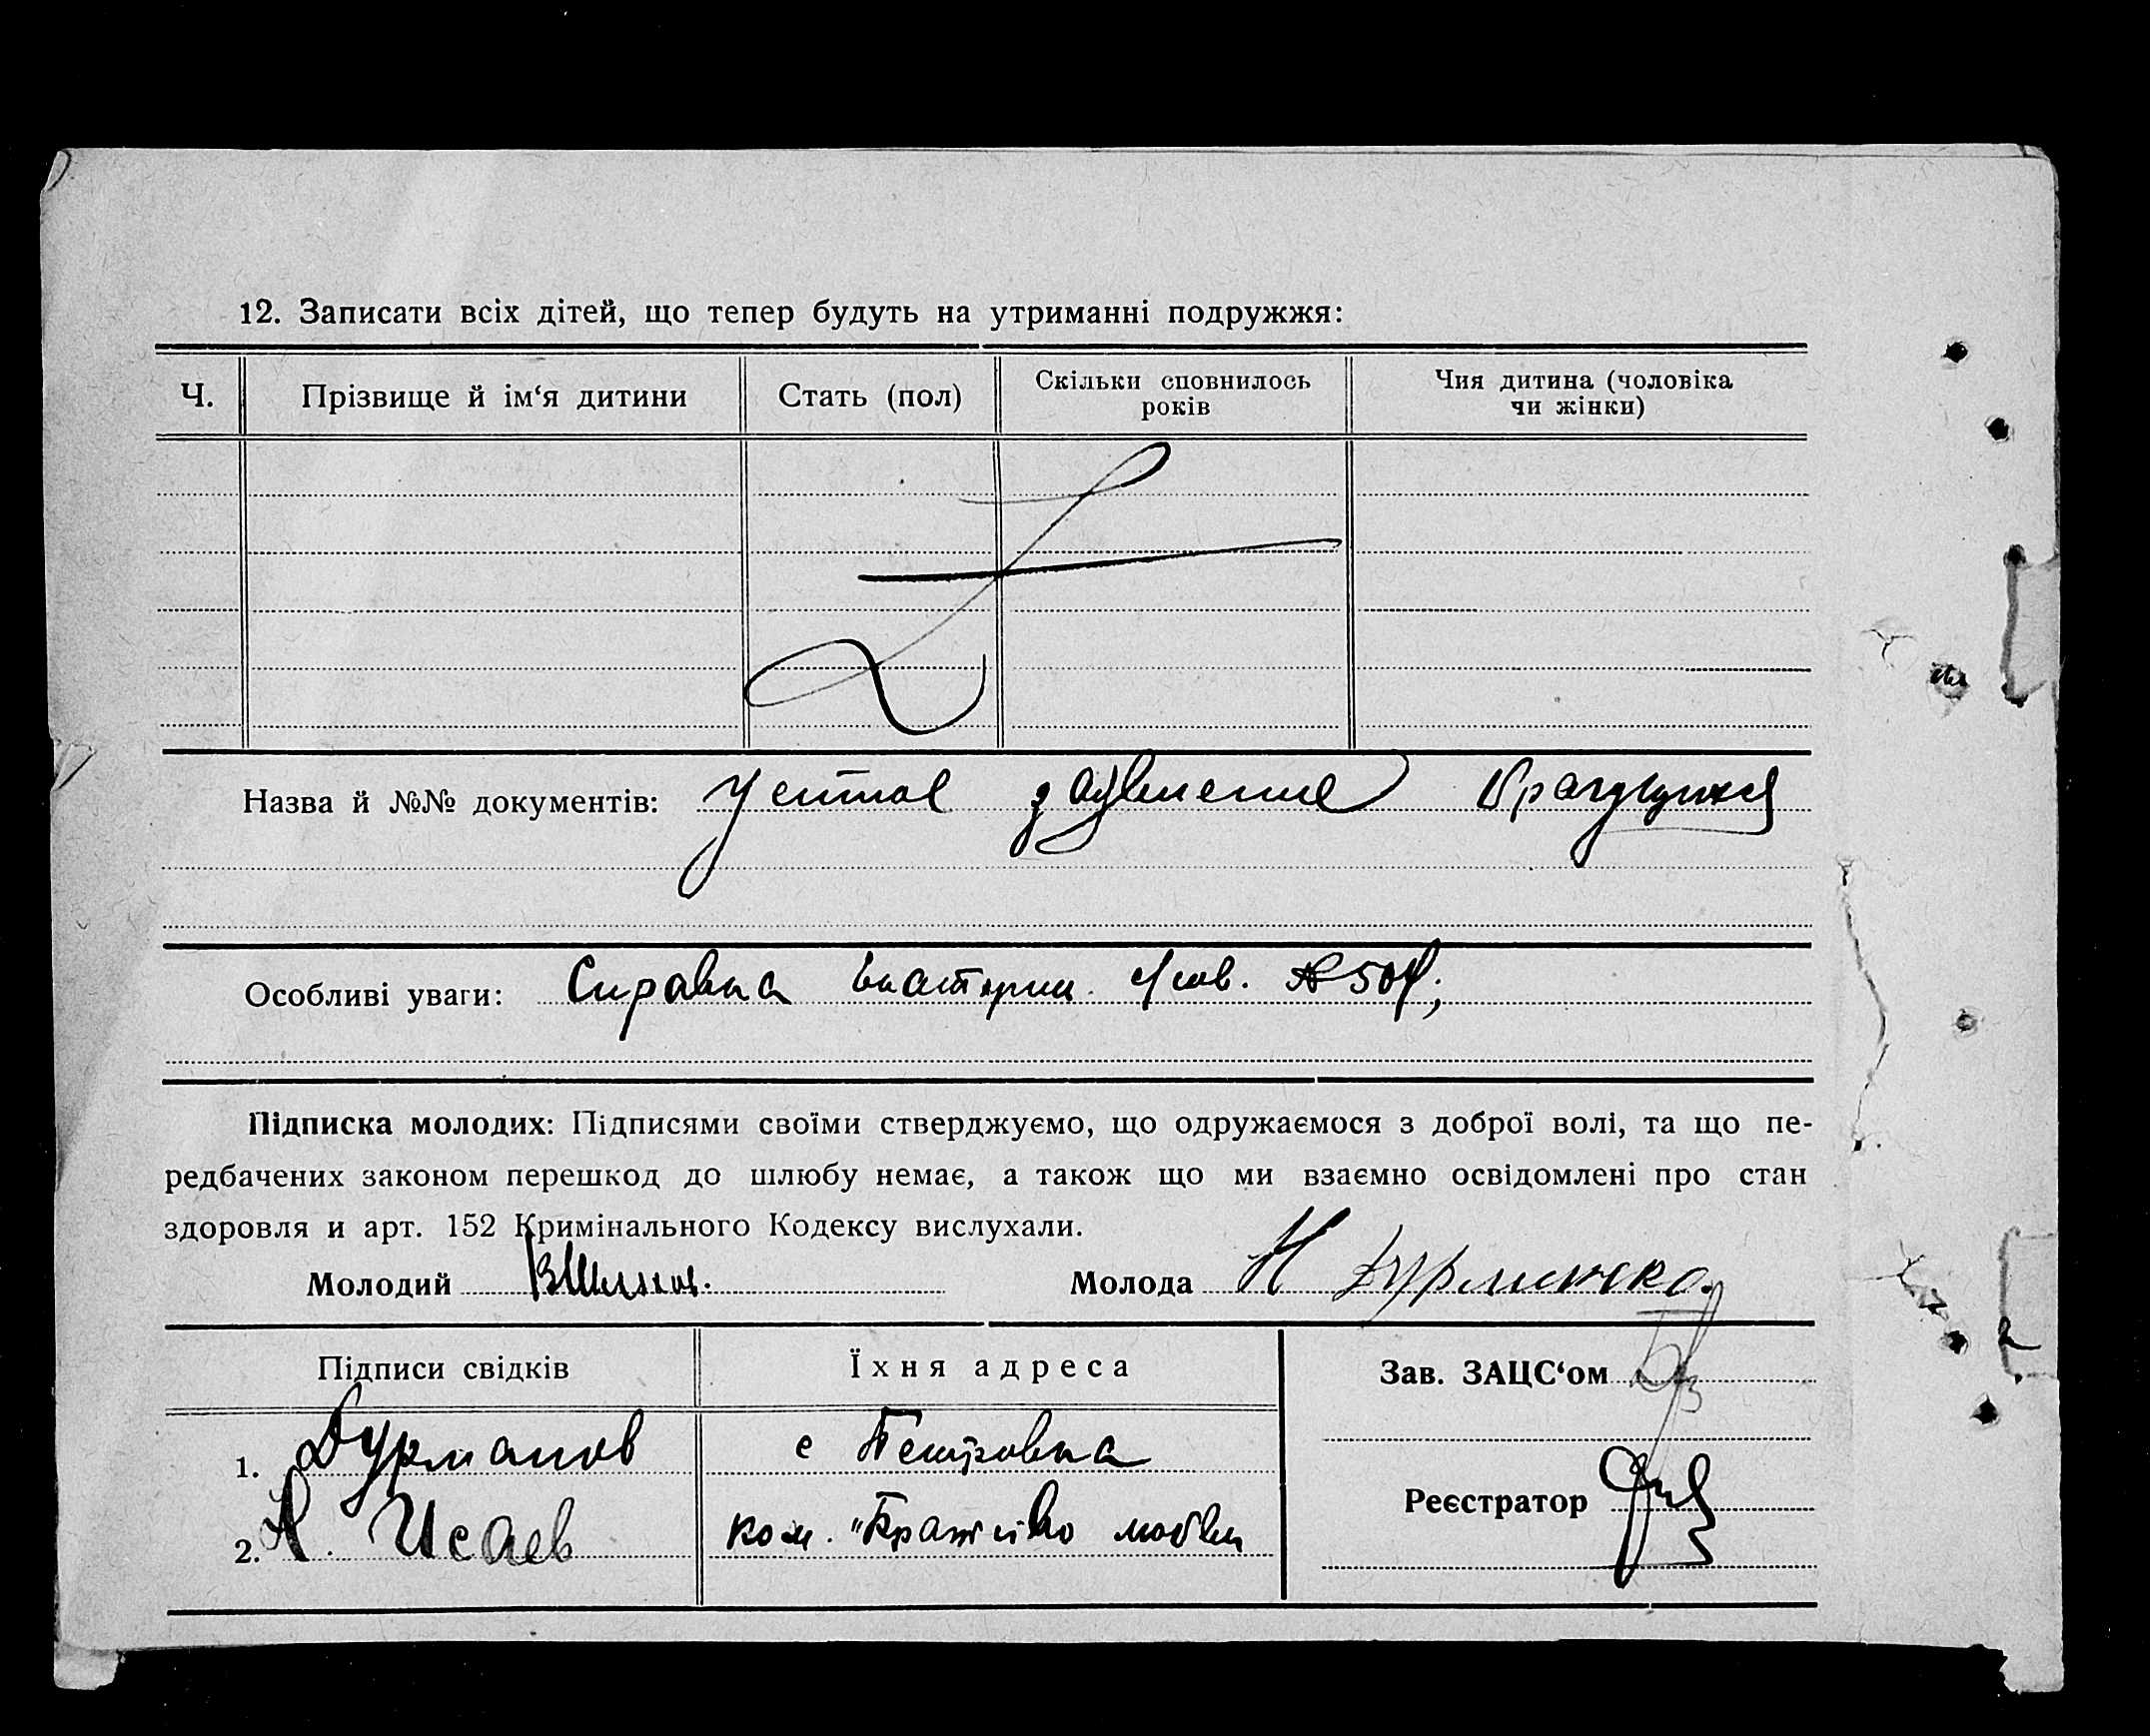 12. Записати всіх дітей, що тепер будуть на утриманні подружжя:
Ч. Прізвище й ім‘я дитини Стать (пол) Скільки сповнилось років Чия дитина (чоловіка чи жінки)
Назва й №№ документів: Устное заявление
Особливі уваги: Справка Екатерин. с/сов. №
Підписка молодих: Підписями своїми стверджуємо, що одружаємося з доброї волі, та що пе-
редбачених законом перешкод до шлюбу немає, а також що ми взаємно освідомлені про стан
здоровля и арт. 152 Кримінального Кодексу вислухали.
Молодий Молода Н
Підписи свідків Їхня адреса Зав. ЗАЦС‘ом
1. Дурманов с Петровка
Реєстратор
2. А. Исаев ком. "Братство любви